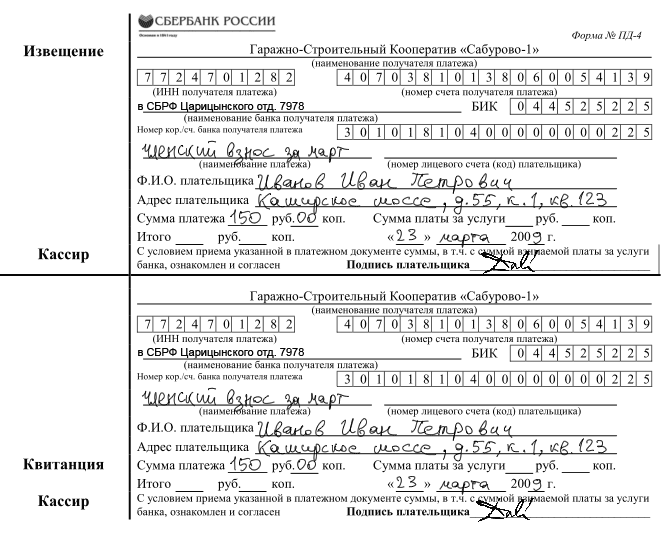 СБЕРБАНК РОССИИ
Основан в 1841 году
Форма № ПД-4
Извещение
Гаражно-Строительный Кооператив «Сабурово-1»
(наименование получателя платежа)
7724701282 40703810138060054139
(ИНН получателя платежа) (номер счета получателя платежа)
в СБРФ Царицынского отд. 7978 БИК 044525225
(наименование банка получателя платежа)
Номер кор./сч. банка получателя платежа 30101810400000000225
Членский взнос за март
(наименование платежа) (номер лицевого счета (код) плательщика)
Ф.И.О. плательщика Иванов Иван Петрович
Адрес плательщика Каширское шоссе, д.55, к.1, кв.123
Сумма платежа 150 руб. 00 коп. Сумма платы за услуги руб. коп.
Итого руб. коп. «23» марта 2009 г.
Кассир
С условием приема указанной в платежном документе суммы, в т.ч. с суммой взимаемой платы за услуги
банка, ознакомлен и согласен Подпись плательщика
Гаражно-Строительный Кооператив «Сабурово-1»
(наименование получателя платежа)
7724701282 40703810138060054139
(ИНН получателя платежа) (номер счета получателя платежа)
в СБРФ Царицынского отд. 7978 БИК 044525225
(наименование банка получателя платежа)
Номер кор./сч. банка получателя платежа 30101810400000000225
Членский взнос за март
(наименование платежа) (номер лицевого счета (код) плательщика)
Ф.И.О. плательщика Иванов Иван Петрович
Адрес плательщика Каширское шоссе, д.55, к.1, кв.123
Квитанция
Сумма платежа 150 руб. 00 коп. Сумма платы за услуги руб. коп.
Итого руб. коп. «23» марта 2009 г.
Кассир
С условием приема указанной в платежном документе суммы, в т.ч. с суммой взимаемой платы за услуги
банка, ознакомлен и согласен Подпись плательщика